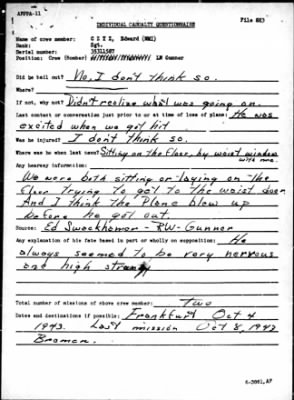 AFPPA-11
File 823
INDIVIDUAL CASUALTY QUESTIONNAIRE
Name of crew member: CZYZ, Edward (NMI)
Rank: Sgt.
Serial number:
Position: Crew (Bomber) LW Gunner
Did he bail out? No, I don't think so.
Where?
If not, why not? Didn't realize what was going on.
Last contact or conversation just prior to or at time of loss of plane: He was
excited when we got hit
Was he injured? I don't think so.
Where was he when last seen? Sitting on the floor, by waist window
with me.
Any hearsay information:
We were both sitting or laying on the
floor trying to get to the waist door
And I think the Plane blew up
before he got out.
Source: Ed Sweckhomer - RW-Gunner
Any explanation of his fate based in part or wholly on supposition: He
always seemed to be very nervous
and high strung
Total number of missions of above crew member: Two
Dates and destinations if possible: Frankfurt Oct 4
1943. Last mission Oct 8, 1943
Bremen.
6-3861,AF